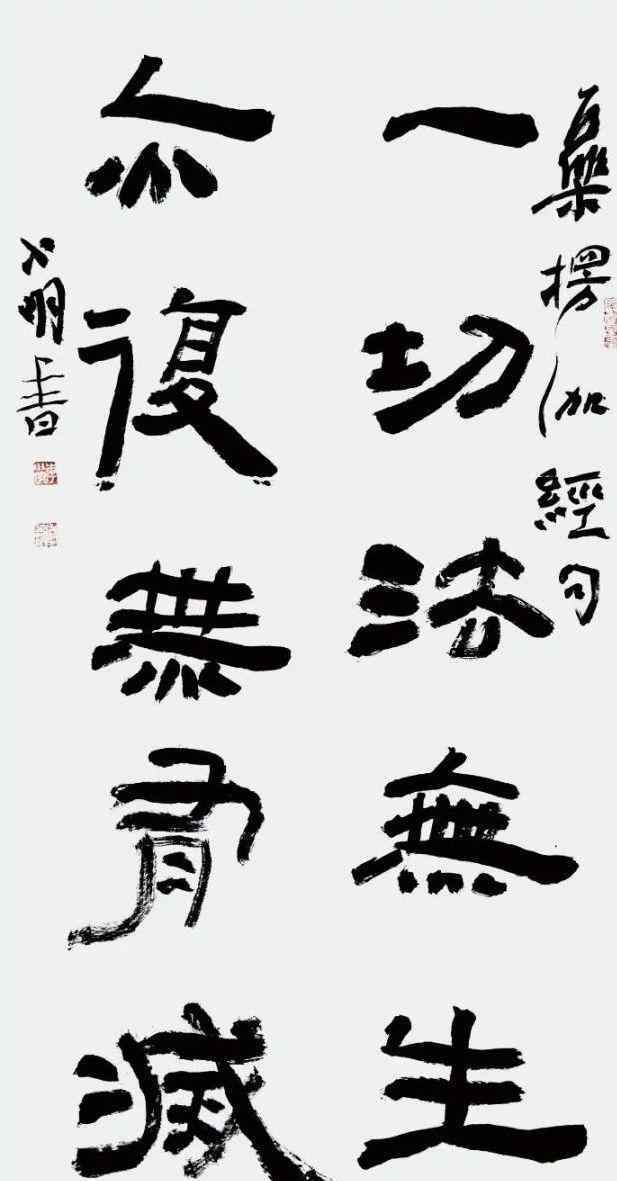 集楞伽經句
一切法無生
亦復無有滅
明書